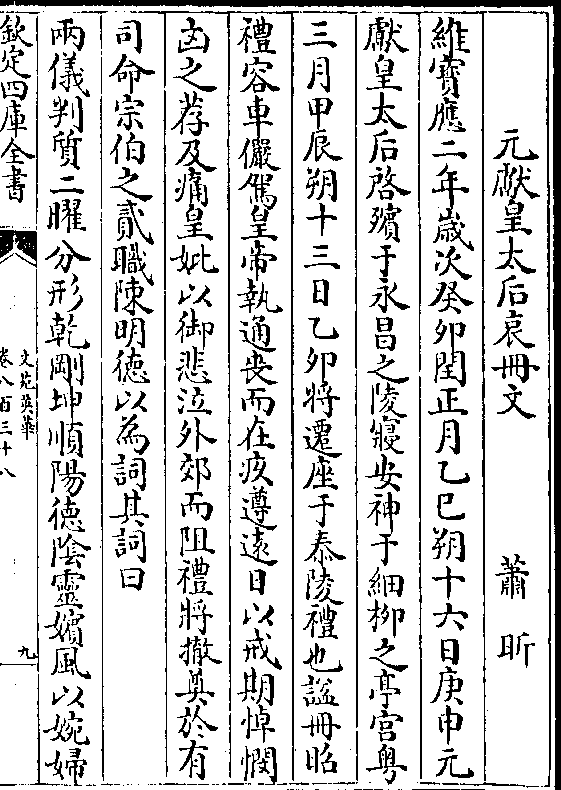 元獻皇太后哀冊文 蕭昕
維寶應二年嵗次癸卯閏正月乙巳朔十六日庚申元
獻皇太后啓殯于永昌之陵寢安神于細栁之亭宫粤
三月甲辰朔十三日乙卯將遷座于泰陵禮也謚冊昭
禮容車儼駕皇帝執通喪而在疚遵逺日以戒期悼閔
凶之荐及痛皇妣以御悲泣外郊而阻禮將撤奠於有
司命宗伯之貳職陳明徳以為詞其詞曰
兩儀判質二曜分形乾剛坤順陽徳陰靈嬪風以婉婦
欽定四庫全書
文苑英華
卷八百三十八
九